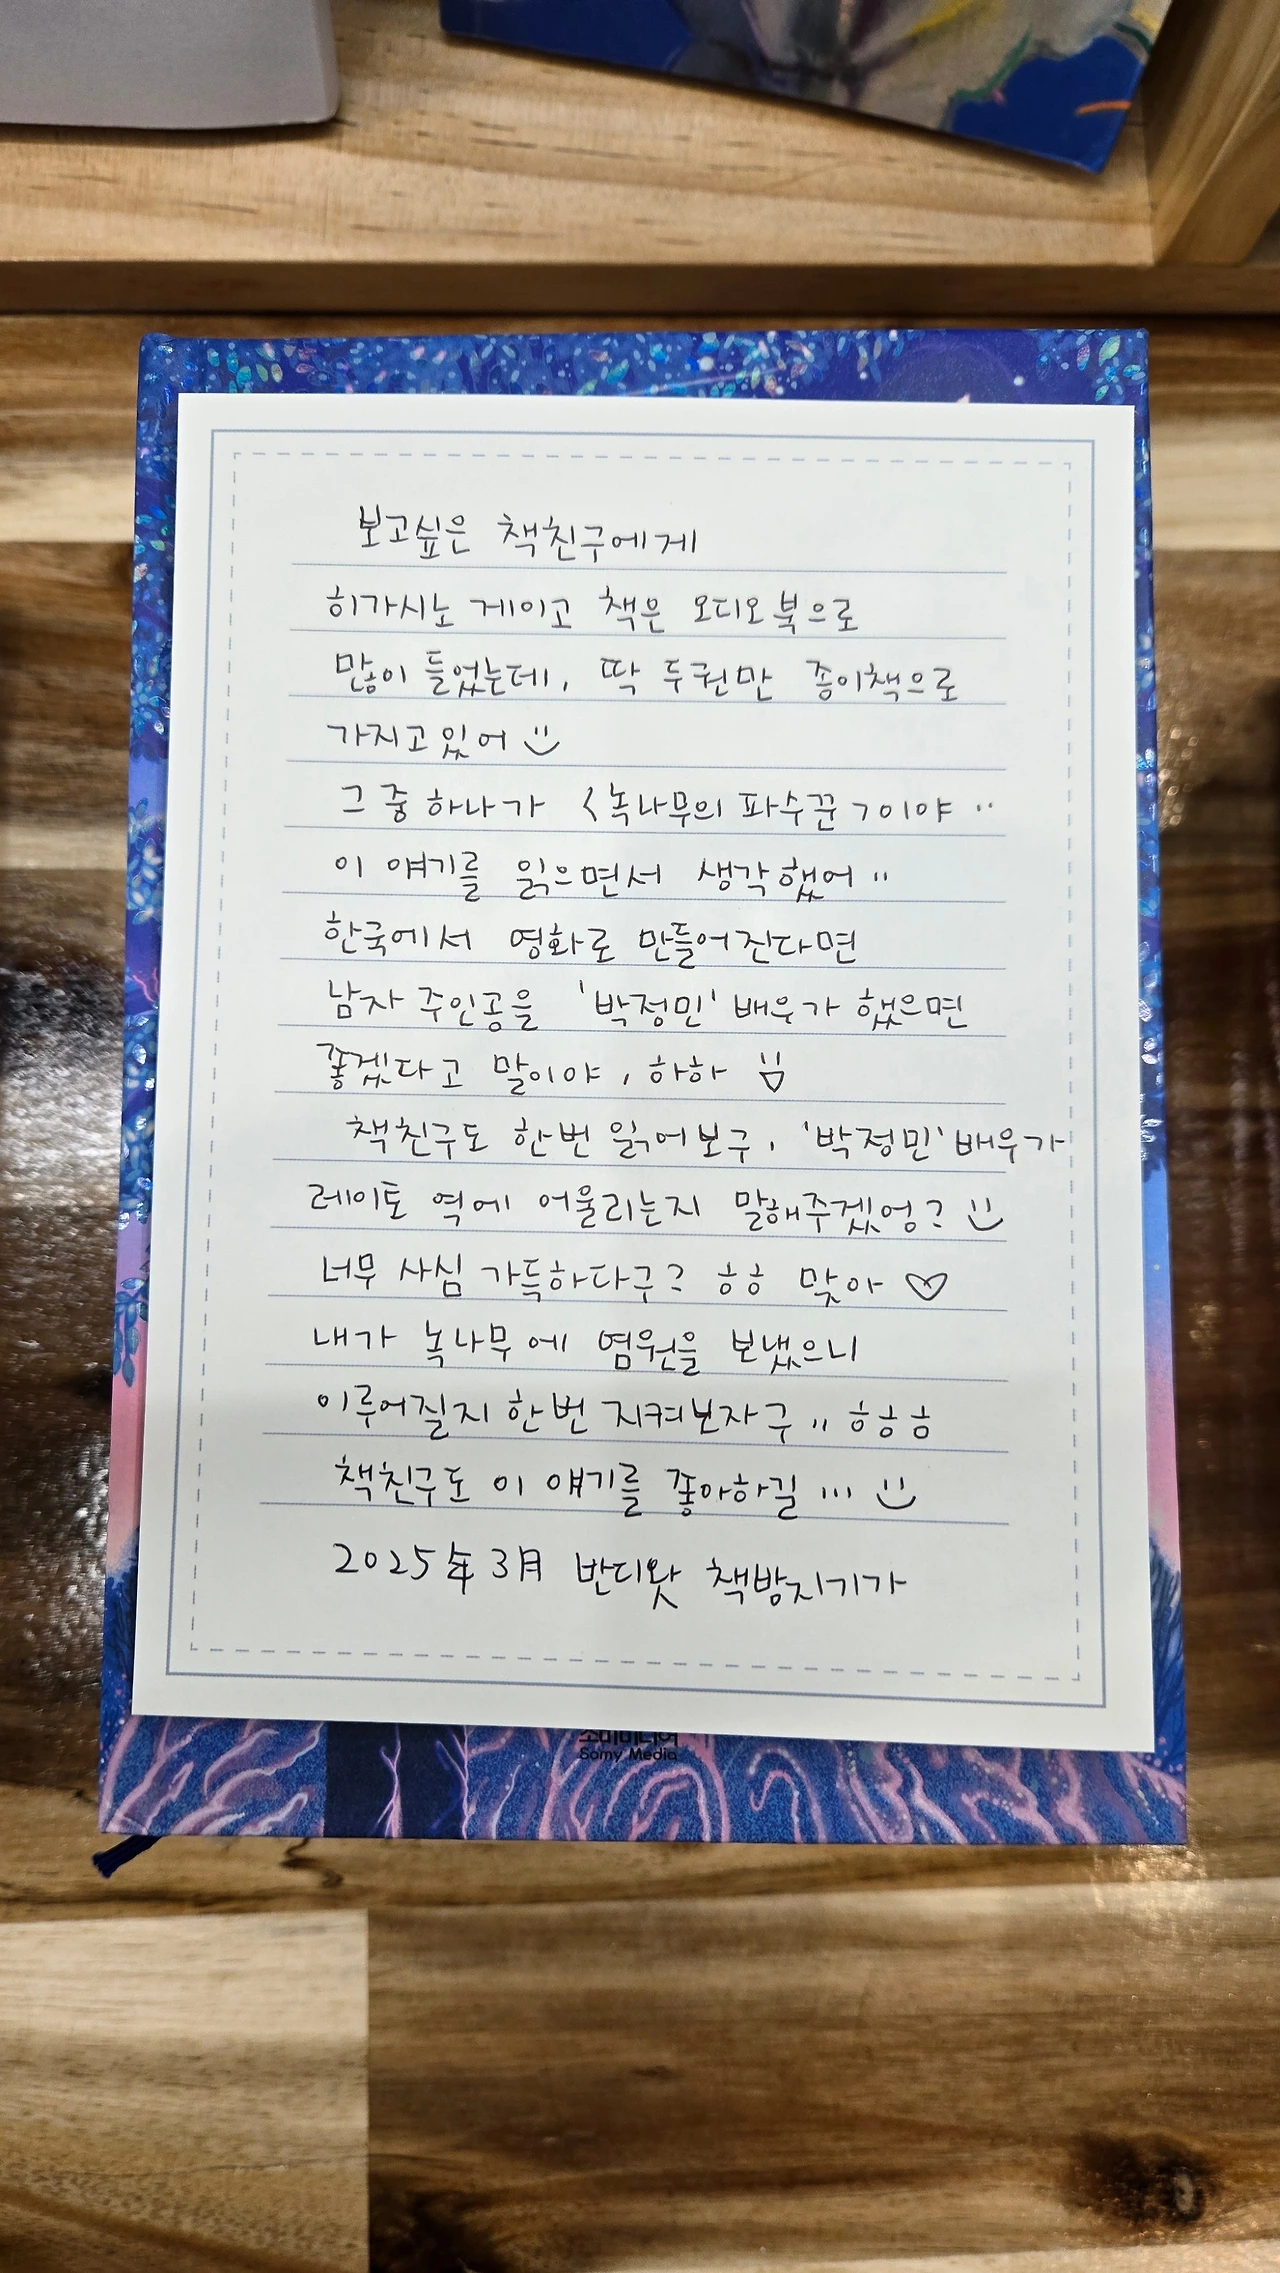 보고싶은 책친구에게
히가시노 게이고 책은 오디오북으로
많이 들었는데, 딱 두권만 종이책으로
가지고 있어
그 중 하나가 <녹나무의 파수꾼>이야 ..
이 얘기를 읽으면서 생각했어 ..
한국에서 영화로 만들어진다면
남자 주인공을 '박정민' 배우가 했으면
좋겠다고 말이야, 하하
책친구도 한번 읽어보구, '박정민' 배우가
레이토 역에 어울리는지 말해주겠엉?
너무 사심 가득하다구? ㅎㅎ 맞아 ♡
내가 녹나무에 염원을 보냈으니
이루어질지 한번 지켜보자구 .. ㅎㅎㅎ
책친구도 이 얘기를 좋아하길 ...
2025年 3月 반디왓 책방지기가
소미미디어
Somy Media